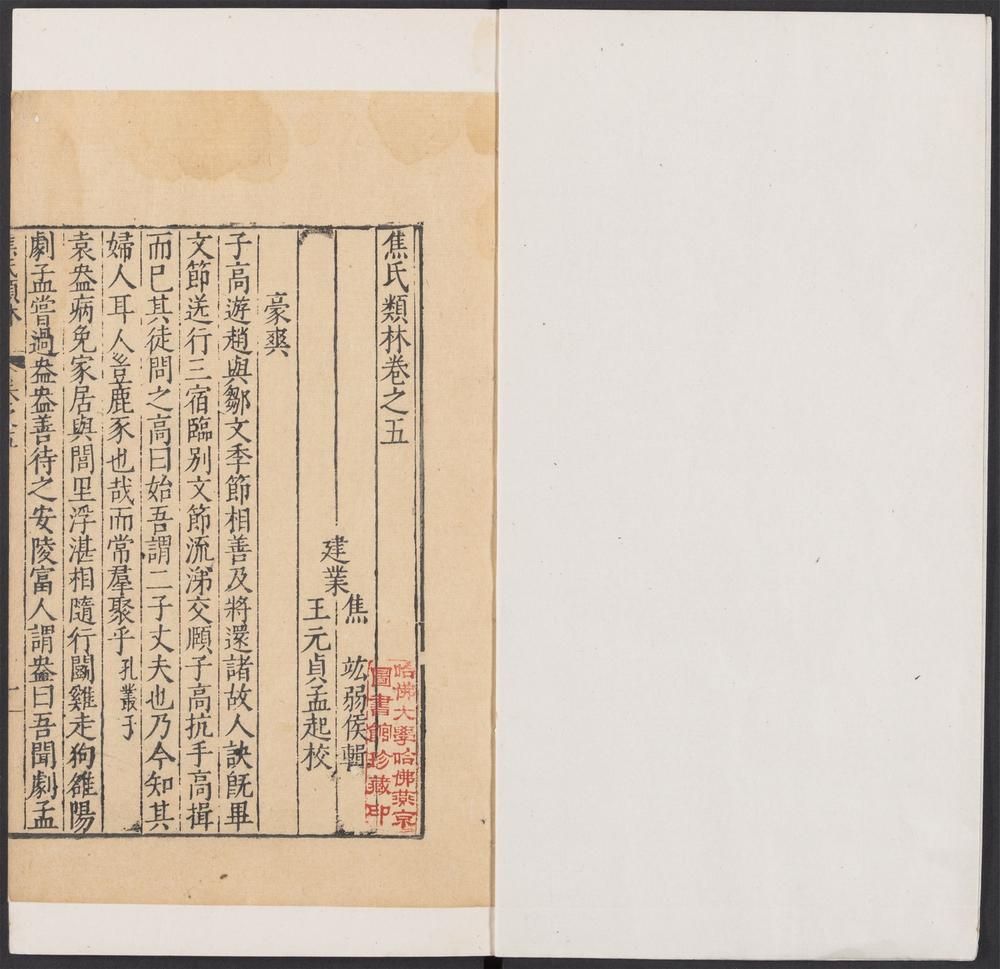 焦氏類林卷之五
建業
焦　竑弱侯輯
王元貞孟起校
豪爽
子高遊趙與鄒文季節相善及將還諸故人訣旣畢
文節送行三宿臨別文節流涕交頤子高抗手高揖
而已其徒問之高曰始吾謂二子丈夫也乃今知其
婦人耳人豈鹿豕也哉而常羣聚乎孔叢子
袁盎病免家居與閭里浮湛相隨行鬭雞走狗雒陽
劇孟嘗過盎盎善待之安陵富人謂盎曰吾聞劇孟
焦氏類林
卷之五
哈佛大學哈佛燕京
圖書館珍藏印